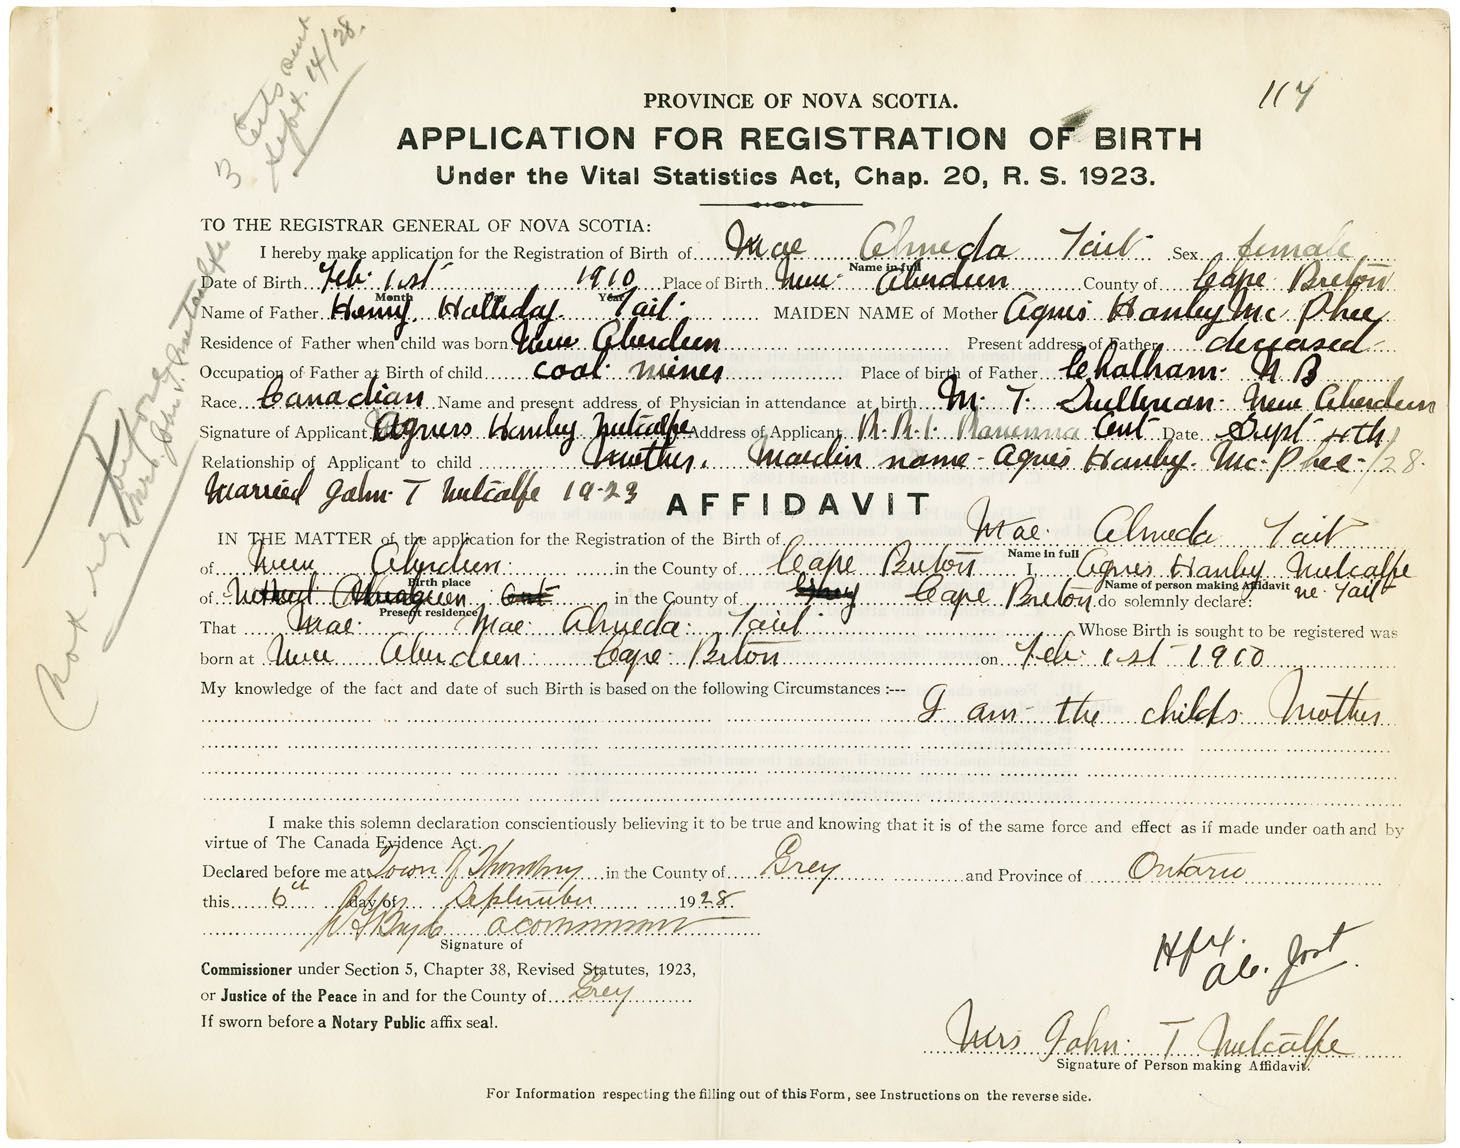 3 Certs sent
Sept. 14/28.
117
PROVINCE OF NOVA SCOTIA.
APPLICATION FOR REGISTRATION OF BIRTH
Under the Vital Statistics Act, Chap. 20, R. S. 1923.
TO THE REGISTRAR GENERAL OF NOVA SCOTIA:
I hereby make application for the Registration of Birth of Mae Almeda Tait Sex female
Name in full
Date of Birth Feb 1st 1910 Place of Birth New Aberdeen County of Cape Breton
Month Day Year
Name of Father Henry Halliday Tait MAIDEN NAME of Mother Agnes Hanley Mc Phee
Residence of Father when child was born New Aberdeen Present address of Father deceased
Occupation of Father at Birth of child coal mines Place of birth of Father Chatham N B
Race Canadian Name and present address of Physician in attendance at birth M. T. Sullivan New Aberdeen
Signature of Applicant Agness Hanley Metcalfe Address of Applicant R. R. 1. Ravenna Ont Date Sept 4th /28.
Relationship of Applicant to child Mother. Maiden name - Agnes Hanley Mc Phee -
Married John T Metcalfe 19-23
AFFIDAVIT
IN THE MATTER of the application for the Registration of the Birth of Mae Almeda Tait
Name in full
of New Aberdeen in the County of Cape Breton I Agnes Hanley Metcalfe
Birth place
Name of person making Affidavit
ne Tait
of in the County of Cape Breton do solemnly declare:
Present residence
That Mae Mae Almeda Tait Whose Birth is sought to be registered was
born at New Aberdeen Cape Breton on Feb 1st 1910
My knowledge of the fact and date of such Birth is based on the following Circumstances :---
I am the childs Mother
I make this solemn declaration conscientiously believing it to be true and knowing that it is of the same force and effect as if made under oath and by
virtue of The Canada Evidence Act.
Declared before me at Town of Thornbury in the County of Grey and Province of Ontario
this 6th day of September 1928
a commissioner
Signature of
Commissioner under Section 5, Chapter 38, Revised Statutes, 1923,
or Justice of the Peace in and for the County of Grey
If sworn before a Notary Public affix seal.
Hfx.
Mrs John T Metcalfe
Signature of Person making Affidavit.
For Information respecting the filling out of this Form, see Instructions on the reverse side.